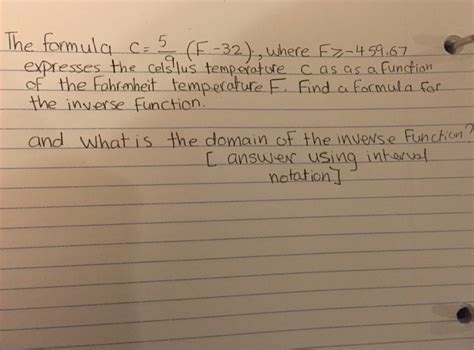 The formula C = 5/9 (F - 32), where F ≥ -459.67
expresses the celsius temperature C as as a function
of the Fahrenheit temperature F. Find a formula for
the inverse function.
and what is the domain of the inverse function?
[ answer using interval
notation]